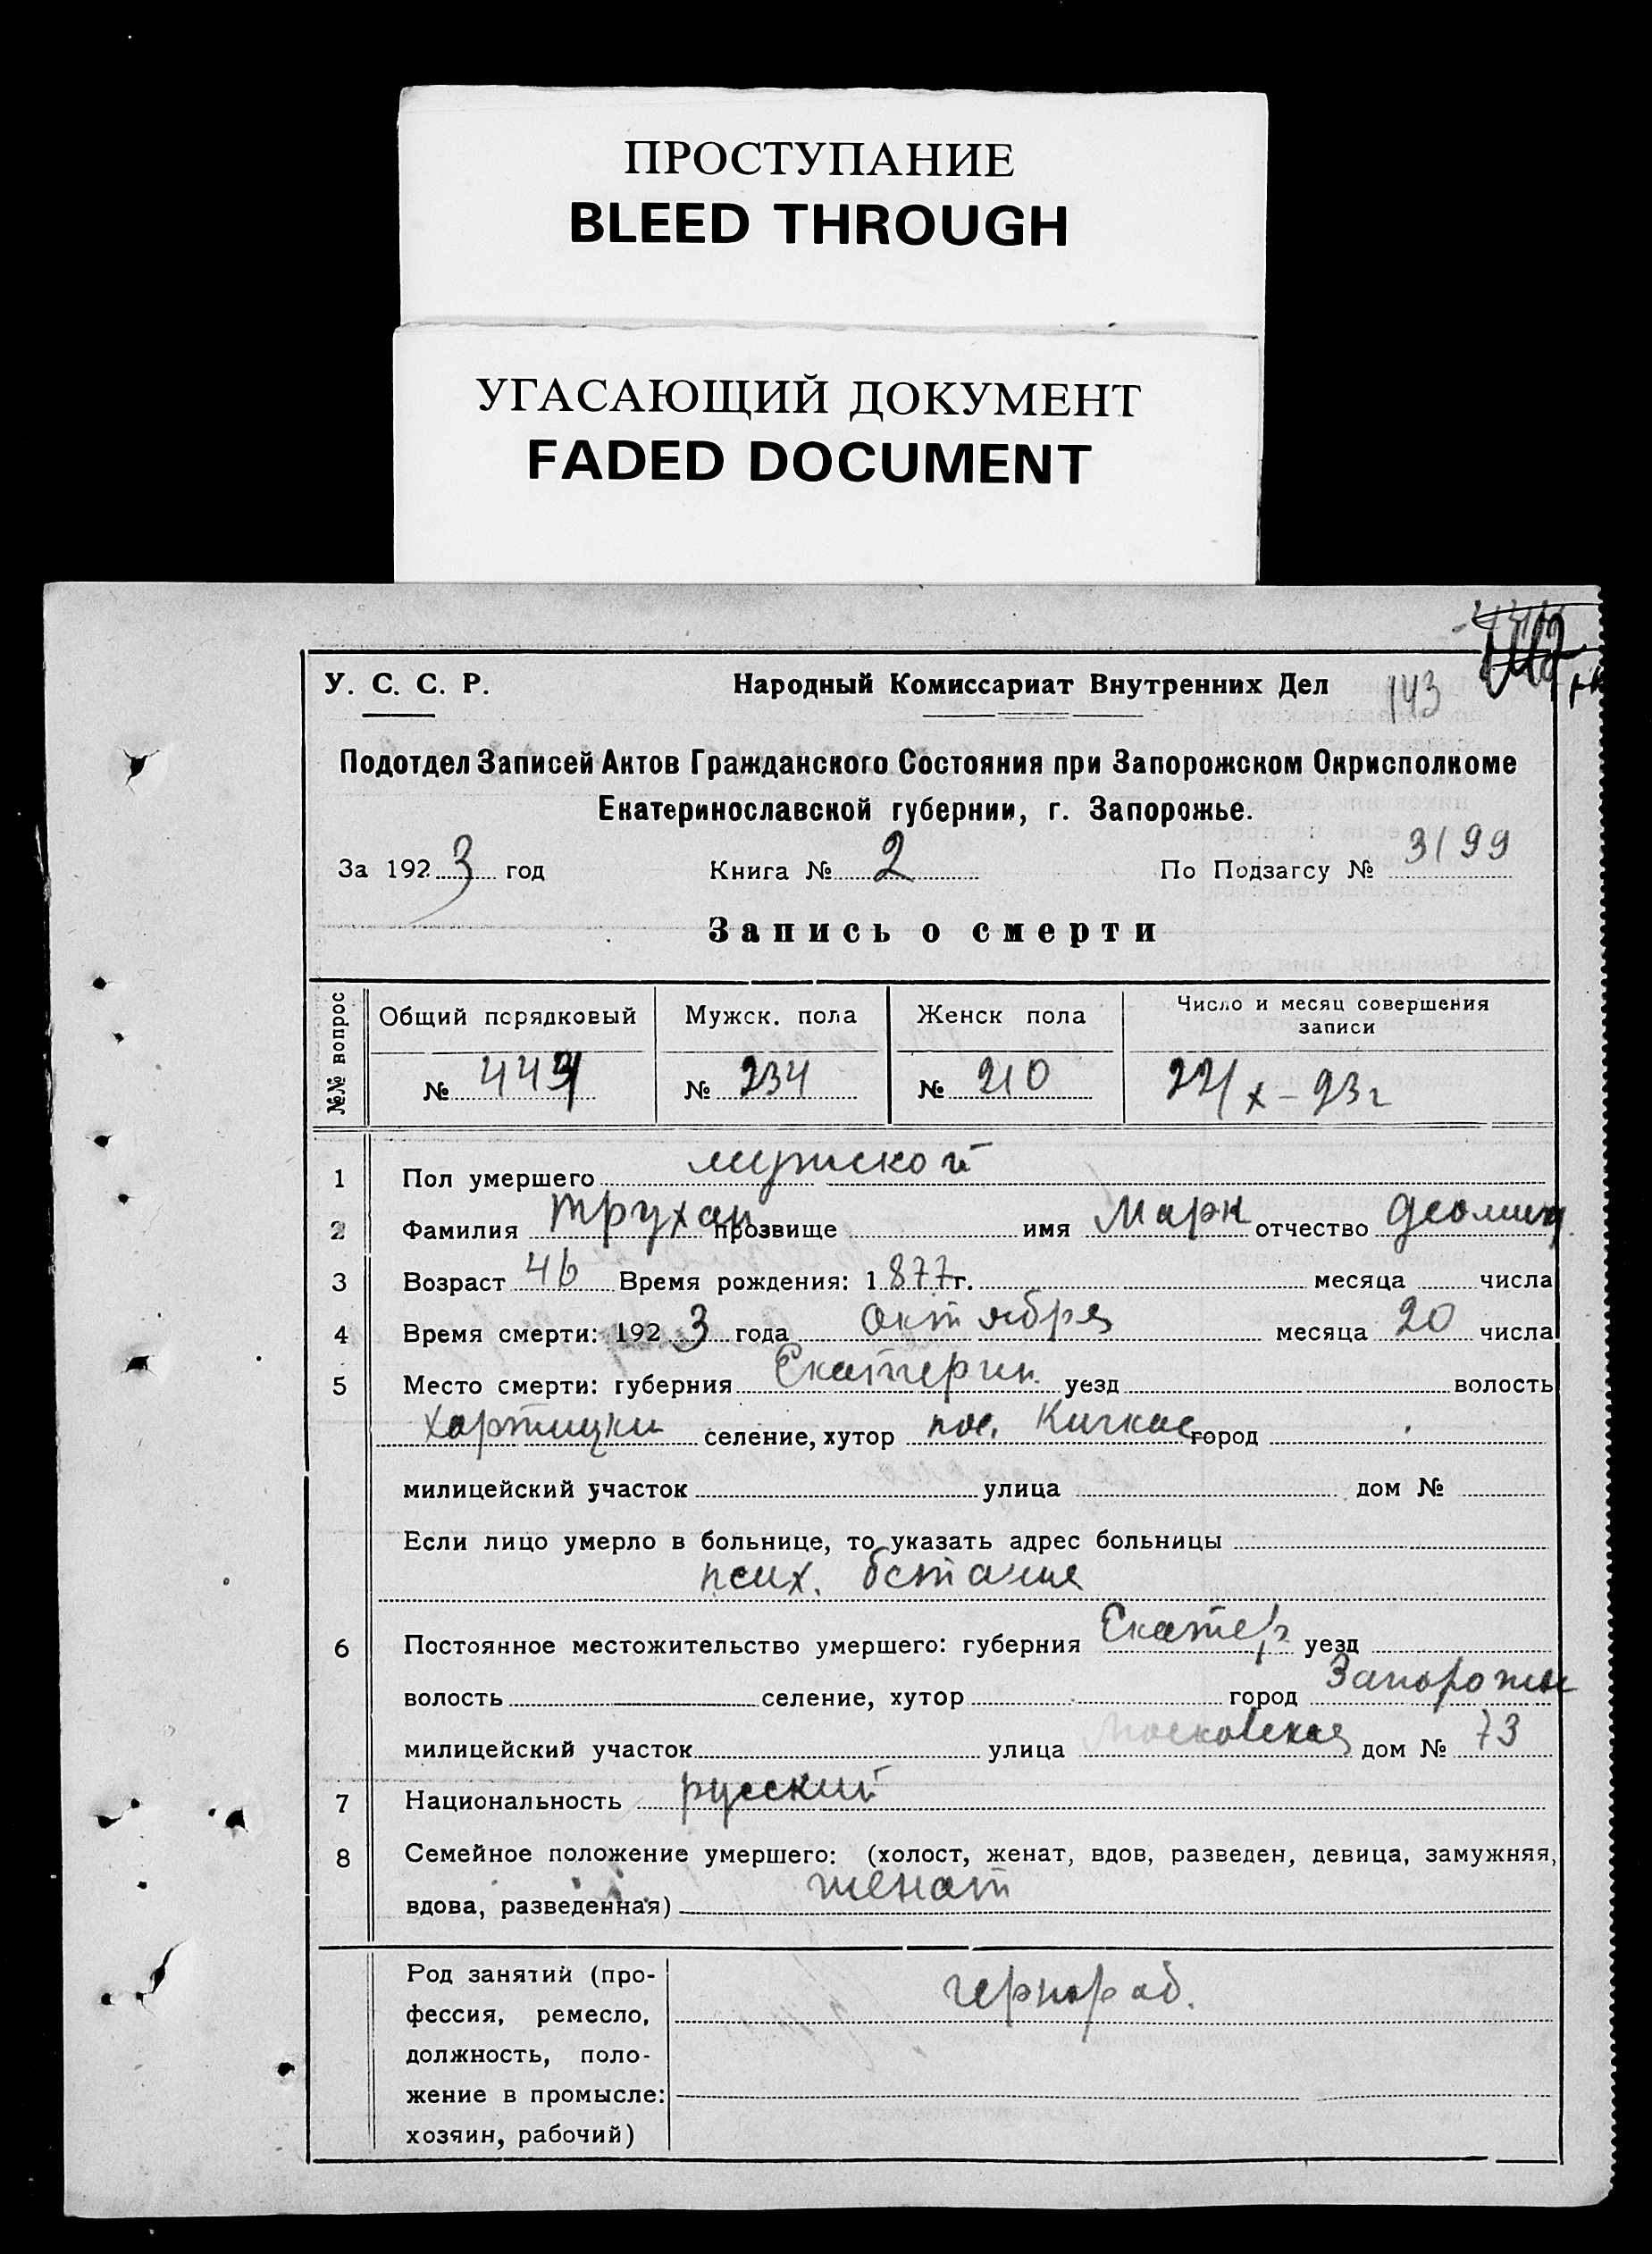 ПРОСТУПАНИЕ
BLEED THROUGH
УГАСАЮЩИЙ ДОКУМЕНТ
FADED DOCUMENT
У. С. С. Р. Народный Комиссариат Внутренних Дел 143
Подотдел Записей Актов Гражданского Состояния при Запорожском Окрисполкоме
Екатеринославской губернии, г. Запорожье.
За 1923 год Книга № 2 По Подзагсу № 3199
Запись о смерти
№№ вопрос Общий порядковый Мужск. пола Женск пола Число и месяц совершения
записи
№ 444 № 234 № 210 22/x – 23 г
1 Пол умершего мужской
2 Фамилия Трухан прозвище имя Марк отчество
3 Возраст 46 Время рождения: 1877 г. месяца числа
4 Время смерти: 1923 года Октября месяца 20 числа
5 Место смерти: губерния Екатерин. уезд волость
Хортицки селение, хутор пос. Кичкас город
милицейский участок улица дом №
Если лицо умерло в больнице, то указать адрес больницы
псих.
6 Постоянное местожительство умершего: губерния Екатер уезд
волость селение, хутор город Запорожье
милицейский участок улица Московская дом № 73
7 Национальность русский
8 Семейное положение умершего: (холост, женат, вдов, разведен, девица, замужняя,
вдова, разведенная) женат
Род занятий (про-
фессия, ремесло, чернораб.
должность, поло-
жение в промысле:
хозяин, рабочий)